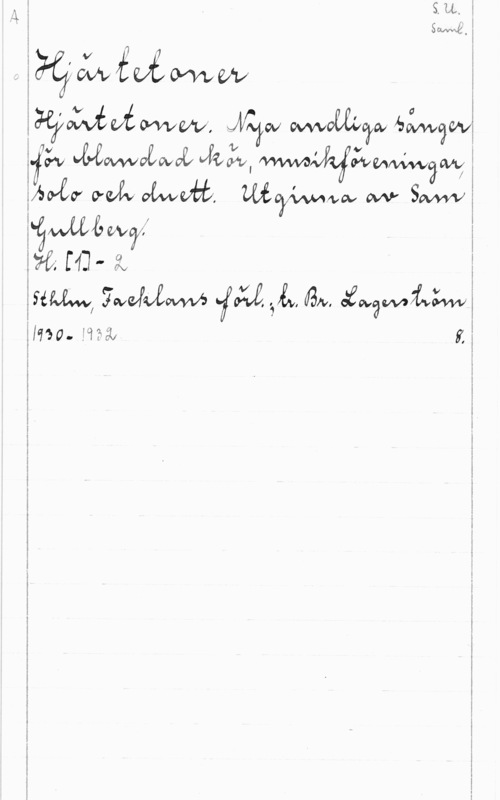 A
S. U.
Saml.
Hjärtetoner
Hjärtetoner. Nya andliga sånger
för blandad kör, musikföreningar,
solo och duett. Utgivna av Sam
Gullberg.
H. [1] - 2
Sthlm, Facklans förl.; tr. Br. Lagerström
1930 - 1932 8.